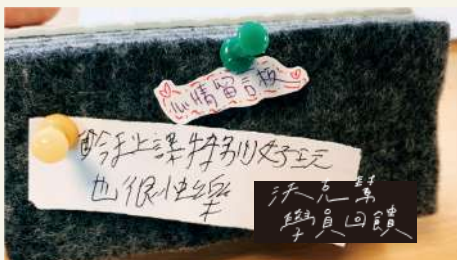 心情留言板
今天上課特別好玩
也很快樂
沃克業
學員回饋